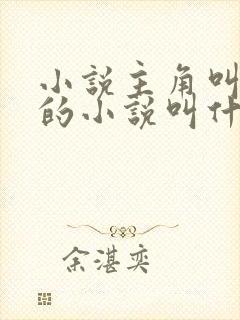 小说主角叫
的小说叫什
余湛奕